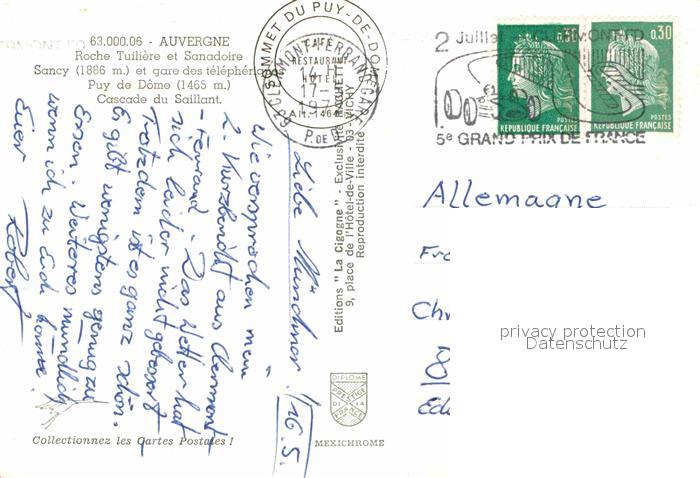 63.000.06 - AUVERGNE
Roche Tuilière et Sanadoire
Sancy (1886 m.) et gare des téléphériq
Puy de Dôme (1465 m.)
Cascade du Saillant.
SOMMET DU PUY-DE-DOME
CAFE
RESTAURANT
HOTEL
Alt. 1464
P. de D.
2 Juillet
5e GRAND PRIX DE FRANCE
0.30
0.30
POSTES
REPUBLIQUE FRANÇAISE
POSTES
REPUBLIQUE FRANÇAISE
Liebe Münchner! 16.5.
Wie versprochen mein
2. Kurzbericht aus Clermont
-Ferrand. Das Wetter hat
sich leider nicht gebessert
Trotzdem ist es ganz schön.
Es gibt wenigstens genug zu
Essen. Weiteres mündlich
wenn ich zu Euch komme.
Euer Robert
Editions "La Cigogne" - Exclusivité
9, place de l'Hôtel-de-Ville - 03-VICHY
Reproduction interdite
Allemagne
Fr
Chr
privacy protection
Datenschutz
DIPLOME
PRESTIGE
DE LA
FRANCE
MEXICHROME
Collectionnez les Cartes Postales !